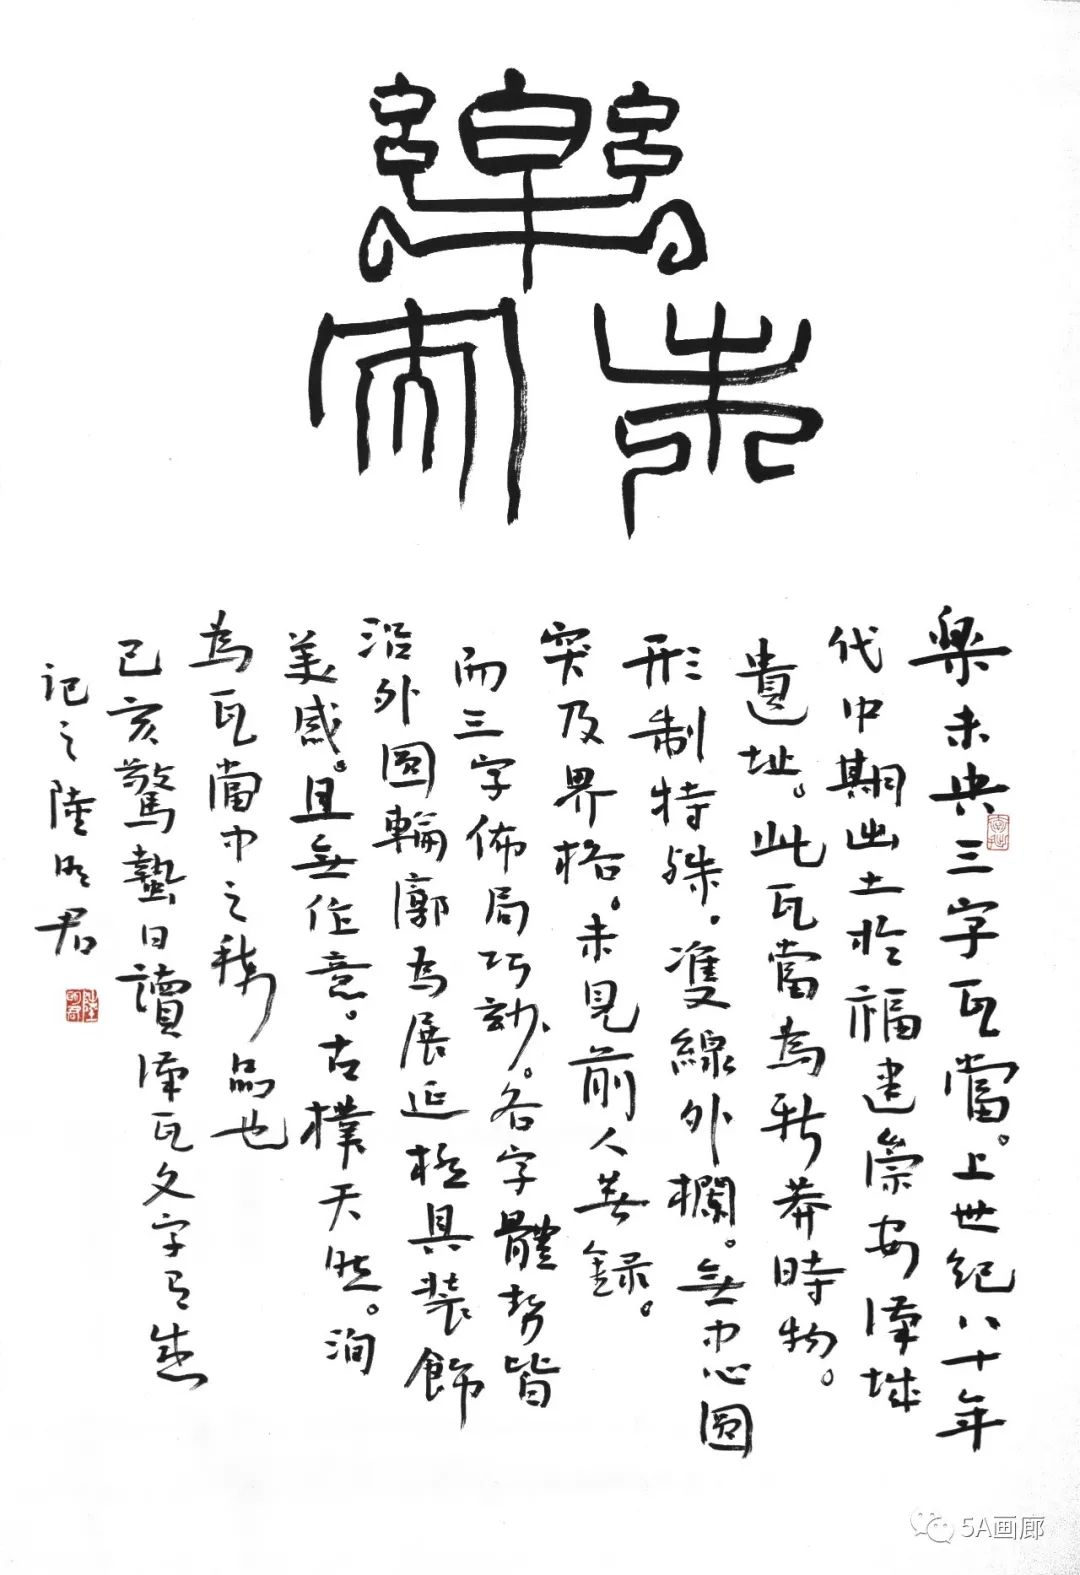 樂未央
樂未央三字瓦當。上世紀八十年
代中期出土於福建崇安漢城
遺址。此瓦當為新莽時物。
形制特殊。雙線外欄。無中心圓
突及界格。未見前人著錄。
而三字佈局巧妙。各字體勢皆
沿外圓輪廓為展延極具裝飾
美感。且無作意。古樸天然。洵
為瓦當中之稀品也
己亥驚蟄日讀漢瓦文字有感
記之陸明君
5A画廊